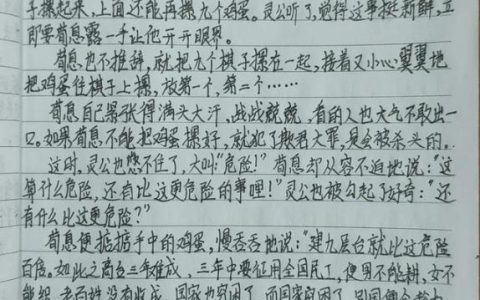 子摞起来，上面还能再摞九个鸡蛋。灵公听了，觉得这事挺新鲜，立
即要荀息露一手让他开开眼界。
荀息也不推辞，就把九个棋子摞在一起，接着又小心翼翼地
把鸡蛋往棋子上摞，放第一个，第二个……
荀息自己紧张得满头大汗，战战兢兢，看的人也大气不敢出一
口。如果荀息不能把鸡蛋摞好，就犯了欺君大罪，是会被杀头的。
这时，灵公也憋不住了，大叫"危险！"荀息却从容不迫地说："这
算什么危险，还有比这更危险的事哩！"灵公也被勾起了好奇："还
有什么比这更危险？"
荀息便掂掂手中的鸡蛋，慢吞吞地说："建九层台就比这危险
百倍。如此之高台三年难成，三年中要征用全国民工，使男不能耕，女不